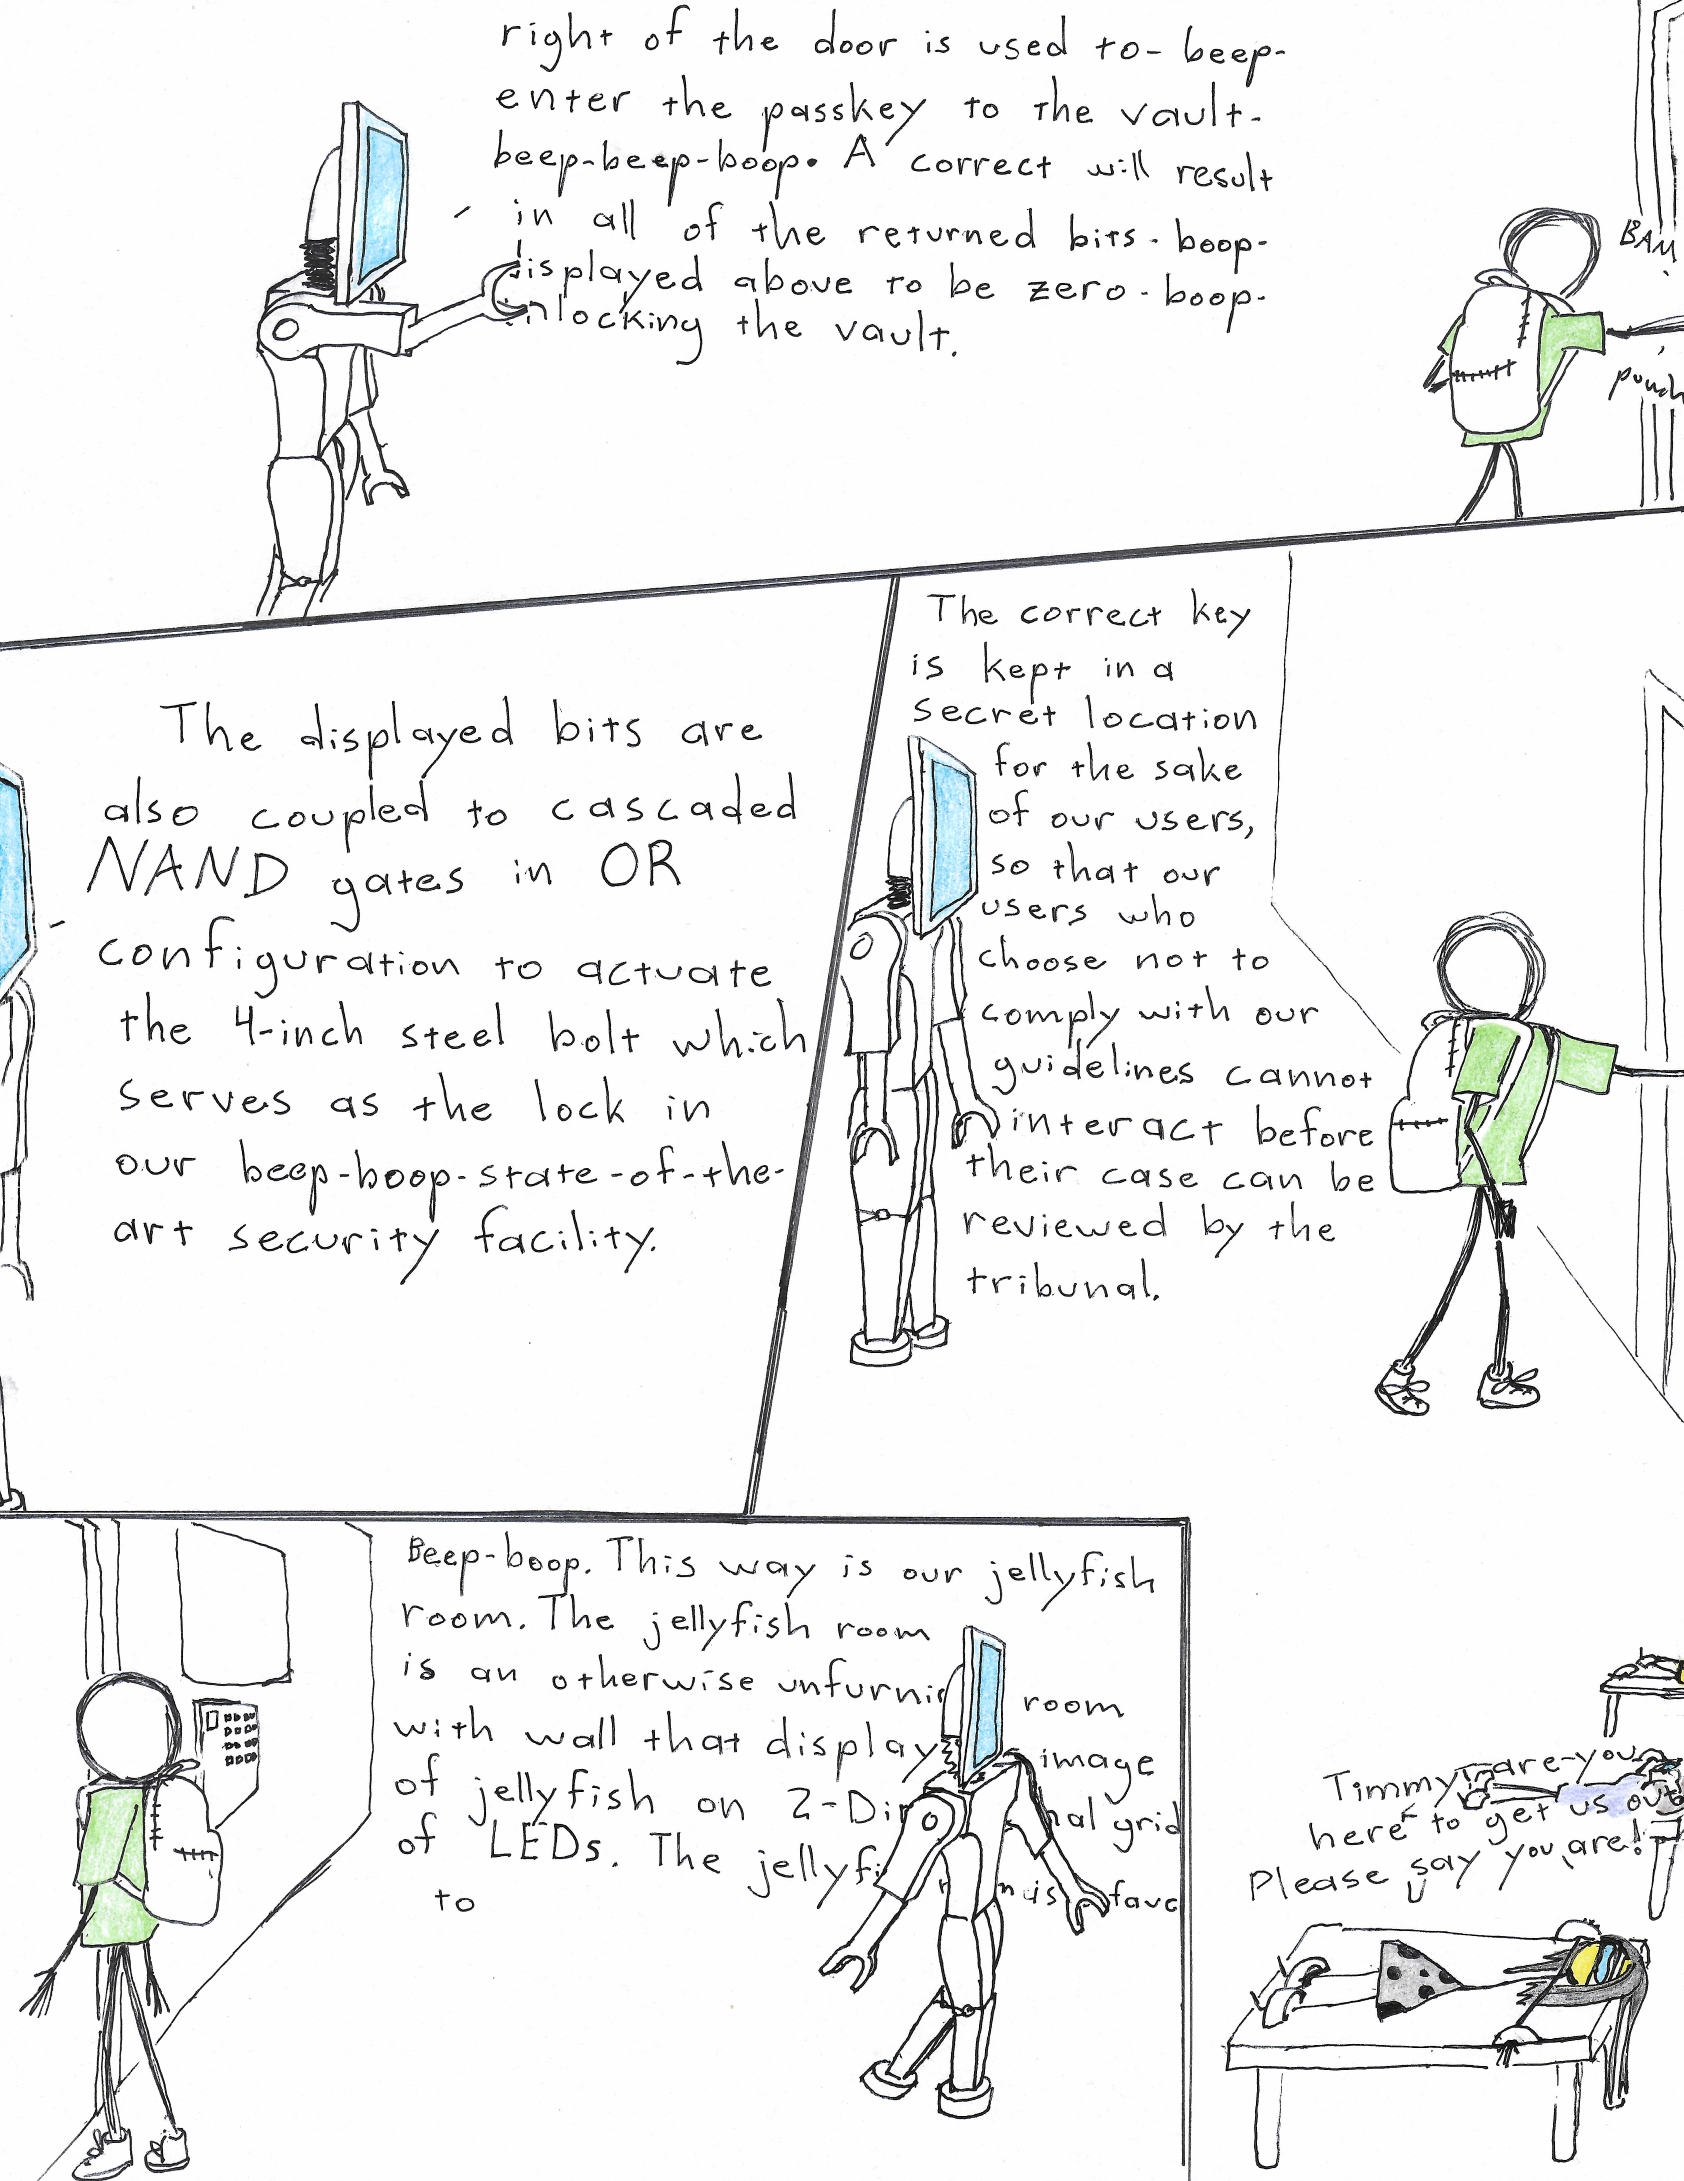 right of the door is used to-beep-
enter the passkey to the vault-
beep-beep-boop. A correct will result
in all of the returned bits-boop-
displayed above to be zero-boop-
unlocking the vault.
BAM
The displayed bits are
also coupled to cascaded
NAND gates in OR
configuration to actuate
the 4-inch steel bolt which
serves as the lock in
our beep-boop-state-of-the-
art security facility.
The correct key
is kept in a
secret location
for the sake
of our users,
so that our
users who
choose not to
comply with our
guidelines cannot
interact before
their case can be
reviewed by the
tribunal.
Beep-boop. This way is our jellyfish
room. The jellyfish room
is an otherwise unfurni room
with wall that display image
of jellyfish on 2-Di nal grid
of LEDs. The jellyfi
to
Timmy, are you
here to get us out
Please say you are!